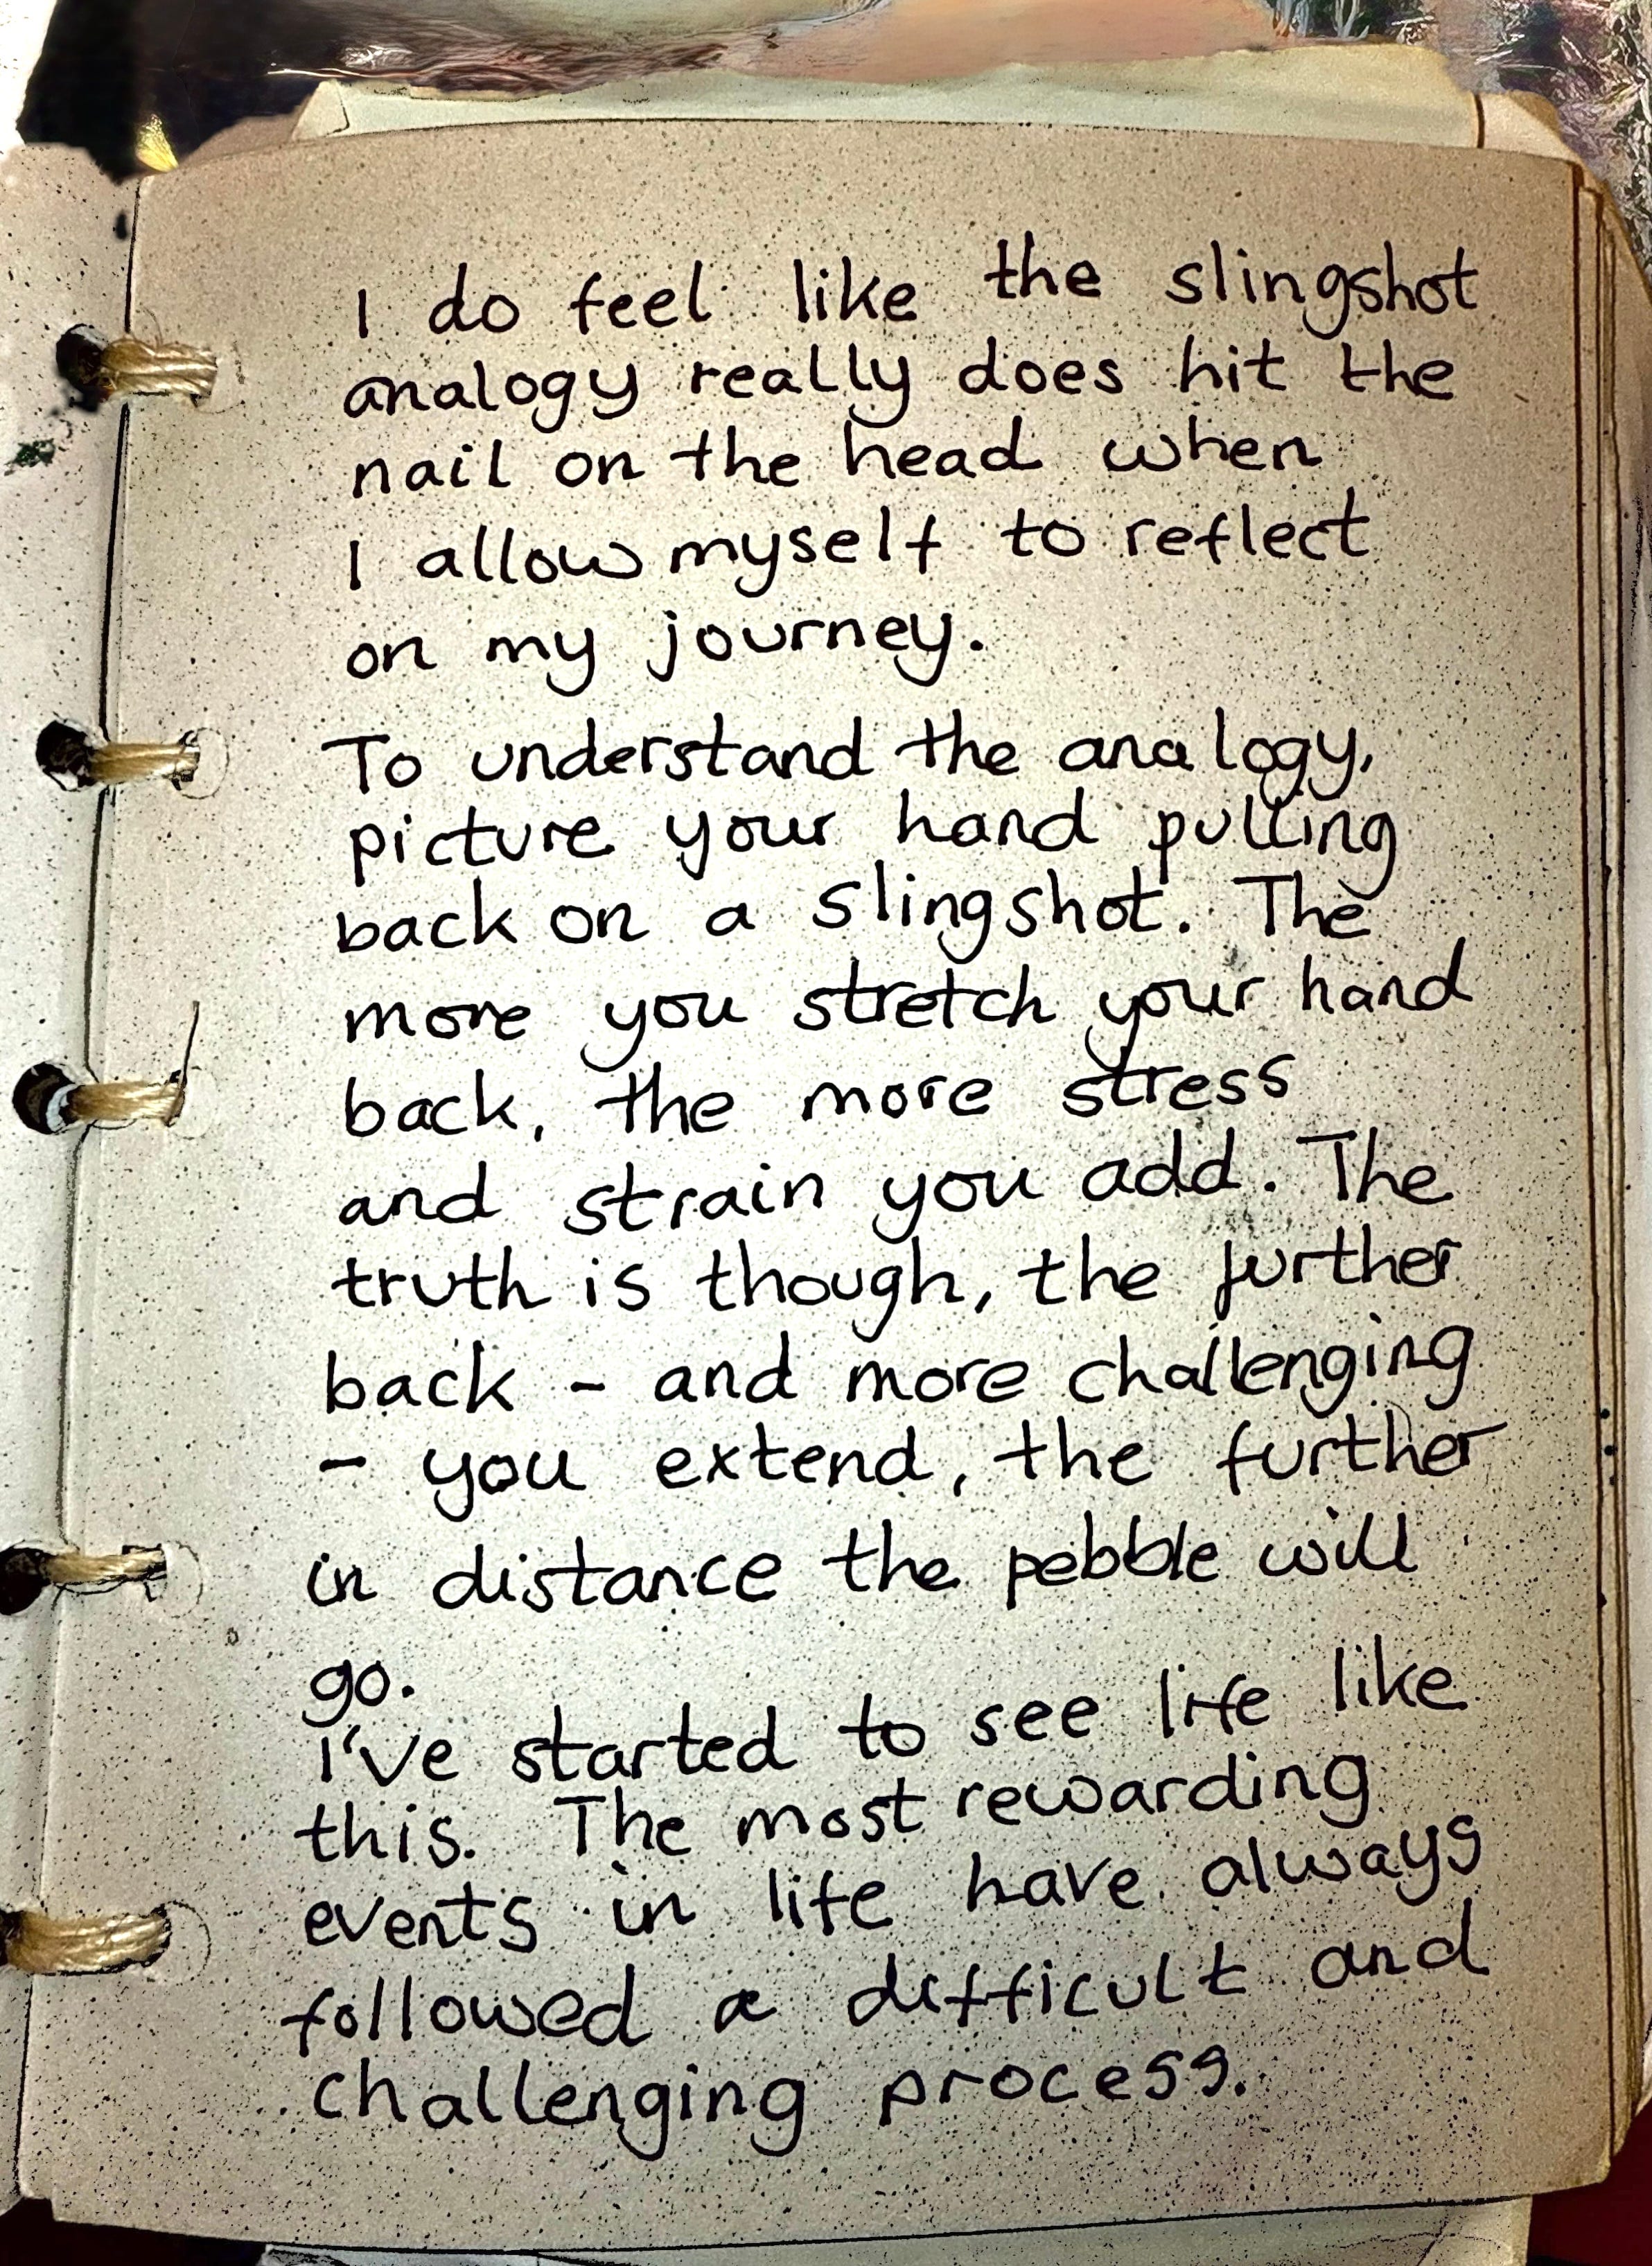 I do feel like the slingshot
analogy really does hit the
nail on the head when
I allow myself to reflect
on my journey.
To understand the analogy,
picture your hand pulling
back on a slingshot. The
more you stretch your hand
back, the more stress
and strain you add. The
truth is though, the further
back - and more challenging
- you extend, the further
in distance the pebble will
go.
I've started to see life like
this. The most rewarding
events in life have always
followed a difficult and
challenging process.